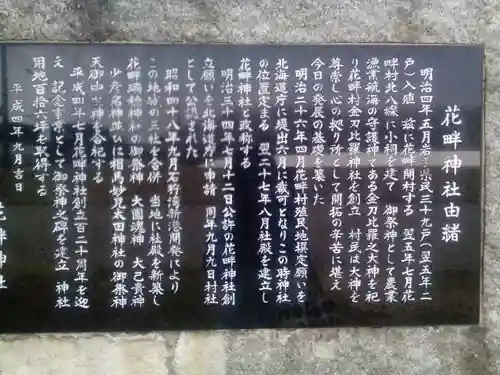 花畔神社由緒
明治四年五月岩手県民三十九戸(翌五年二
戸)入殖 茲に花畔開村する 翌五年七月花
畔村北八線に小祠を建て 御祭神として農業
漁業航海の守護神である金刀比羅之大神を祀
り花畔村金刀比羅神社を創立 村民は大神を
尊崇し心の拠り所として開拓の辛苦に堪え
今日の発展の基礎を築いた
明治二十六年四月花畔村殖民地撰定願いを
北海道庁に提出六月に裁可となりこの時神社
の位置定まる 翌二十七年八月社殿を建立し
花畔神社と改称する
明治三十四年七月十二日公許の花畔神社創
立願いを北海道庁に申請 同年九月九日村社
として公認された
昭和四十八年九月石狩湾新港開発により
この地域の三社を合併 当地に社殿を新築し
花畔 神社の御祭神 大国魂神 大己貴神
少彦名神並びに相馬妙見太田神社の御祭神
天御中主神を合祀する
平成四年七月花畔神社創立百二十周年を迎
え 記念事業として御祭神之碑を建立 神社
用地百拾六坪を取得する
平成四年九月吉日
花畔神社